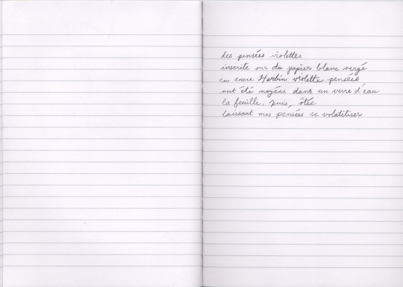 des pensées violettes
inscrite sur du papier blanc vergé
en encre Herbin violette pensée
ont été noyées dans un verre d'eau
la feuille, puis, ôtée
laissant mes pensées se volatiliser